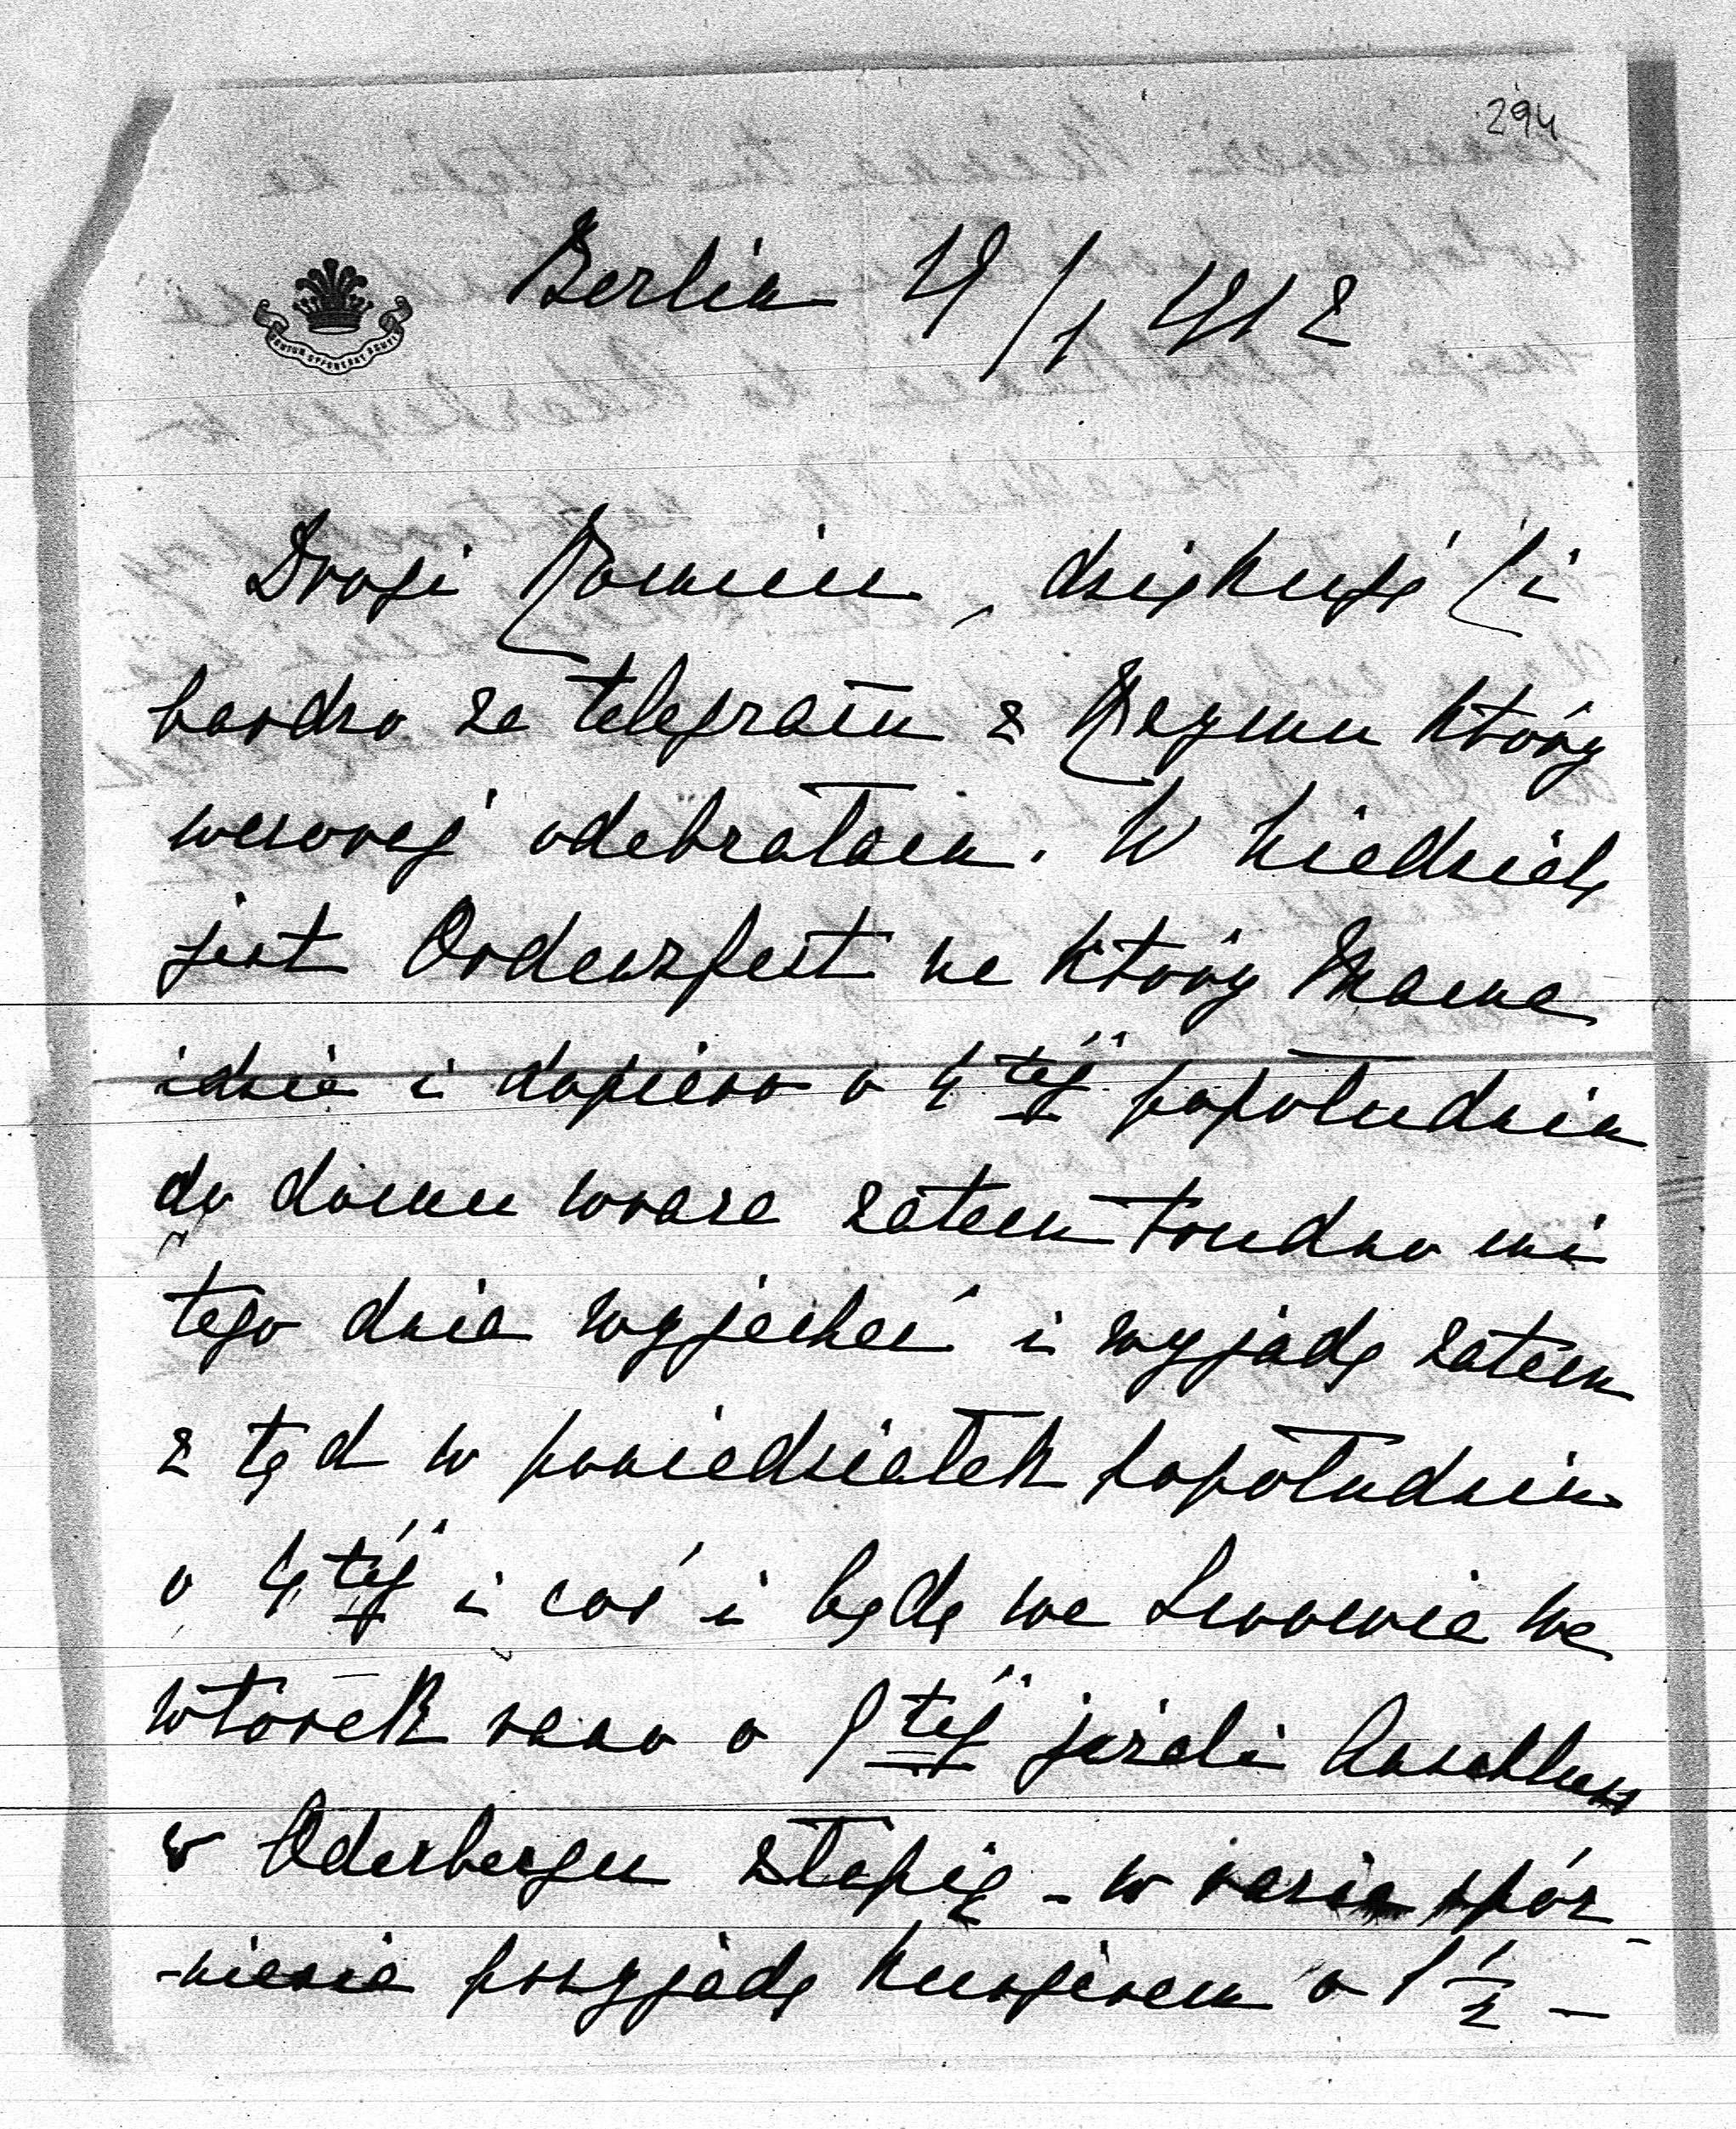 294
Berlin 19/1 1912
Drogi Romciu, dziękuję Ci
bardzo za telegram z Rzymu który
wczoraj odebrałam. W Niedzielę
jest Ordensfest na który Mama
idzie i dopiero o 4 tej popołudniu
do domu wraca zatem trudno mi
tego dnia wyjechać i wyjadę zatem
z tąd w poniedziałek popołudniu
o 4 tej i coś i będę we Lwowie we
wtorek rano o 9 tej jeżeli Anschluss
w Oderbergu złapię - w razie spóź-
-nienia przyjadę kurjerem o 1 1/2 -